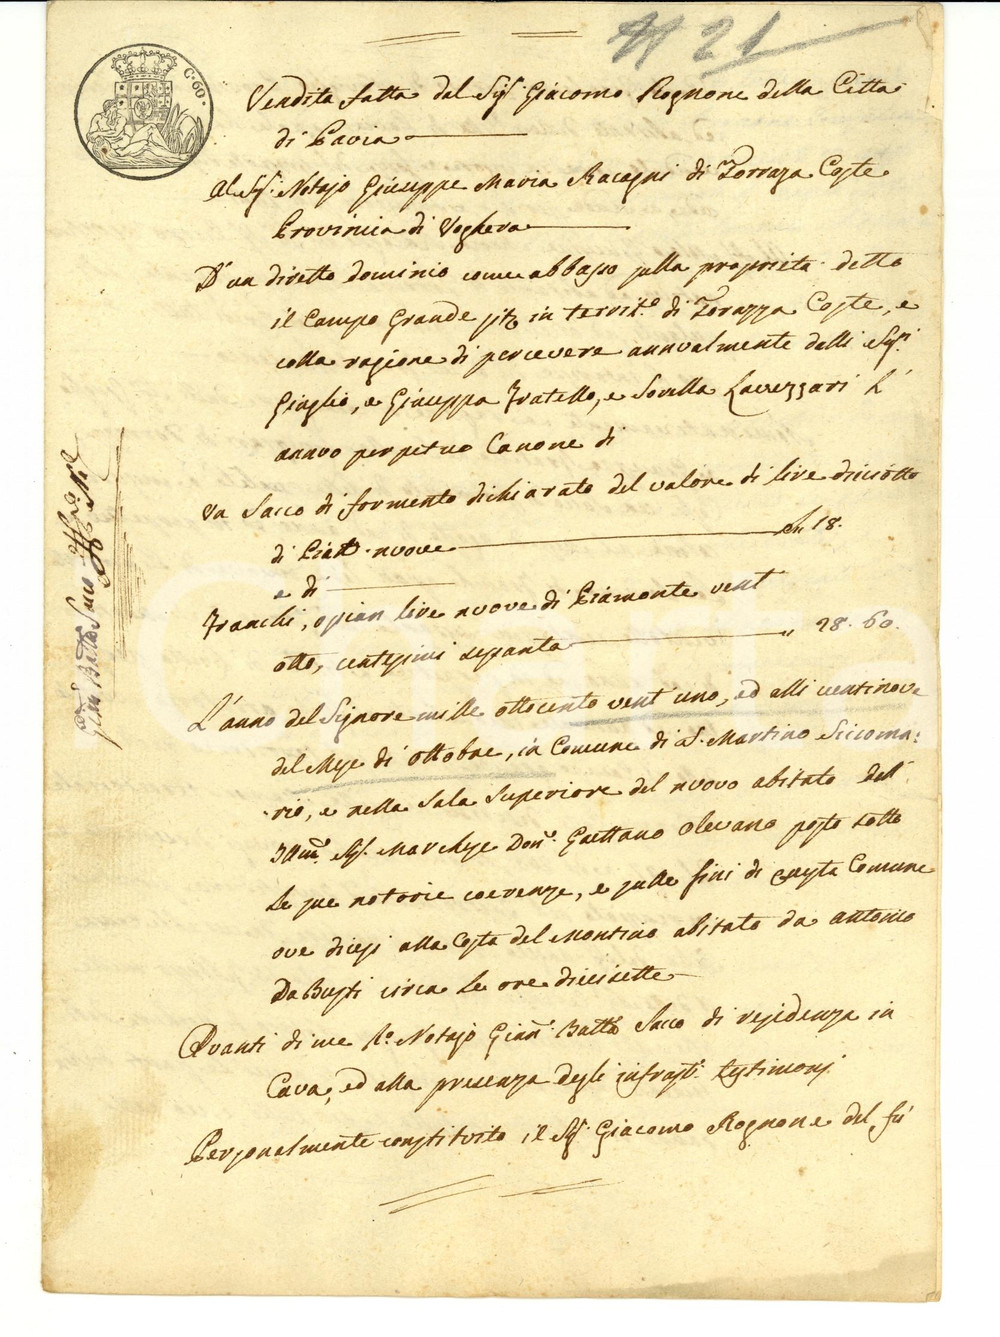 # 21
C. 80.
Vendita fatta dal Sig.r Giacomo Rognone della Citta
di Pavia
Al Sig.r Notajo Giuseppe Maria Racagni di Torraza Coste
Provincia di Voghera
D'un diretto dominio come abbasso sulla proprietà detta
il Campo Grande in territ.o di Torazza Coste, e
colla ragione di percevere annualmente dalli Sig.ri
Giuglio, e Giuseppa Fratello, e Sorella Lavezzari L'
annuo perpetuo Canone di
Un Sacco di formento dichiarato del valore di lire dieciotto
di Piem.te nuove Ln 18.
e di
Franchi, o sian lire nuove di Piamonte vent
otto, centesimi sessanta " 28. 60.
L'anno del Signore mille ottocento vent uno, ed alli ventinove
del Mese di ottobre, in Comune di S. Martino Siccoma:
rio, e nella Sala Superiore del nuovo abitato dell'
Ill.mo Sig.r Marchese Don Gaettano Olevano posto sotto
le sue notorie coerenze, e sulle fini di questa Comune
ove dicesi alla Costa del Montino abitato da Antonio
Da Busti circa le ore diecisette
Avanti di me R.o Notajo Gian Batt.a Sacco di residenza in
Cava, ed alla presenza degli infras.ti testimonj
Personalmente constituito il Sig.r Giacomo Rognone del fu
Gian Batta Sacco